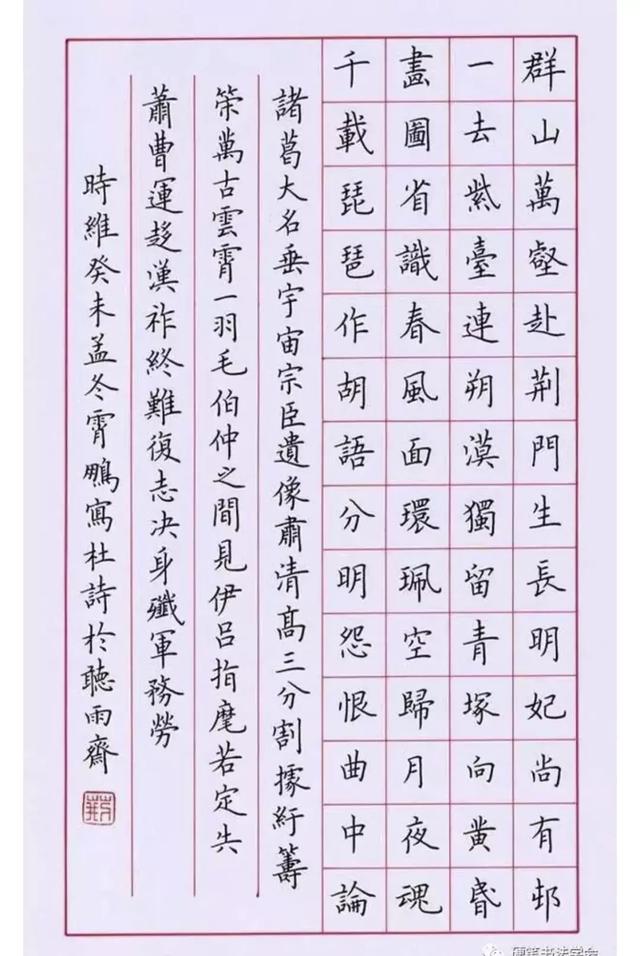 群山萬壑赴荆門生長明妃尚有邨
一去紫臺連朔漠獨留青塚向黄昏
畫圖省識春風面環珮空歸月夜魂
千載琵琶作胡語分明怨恨曲中論
諸葛大名垂宇宙宗臣遺像肅清高三分割據紆籌
策萬古雲霄一羽毛伯仲之間見伊吕指麾若定失
蕭曹運移漢祚終難復志决身殲軍務勞
時維癸未孟冬霄鵬寫杜詩於聽雨齋
硬笔书法学会